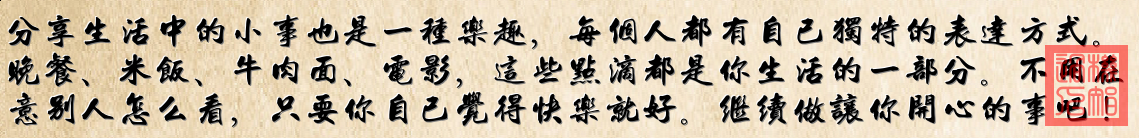 分享生活中的小事也是一種樂趣，每個人都有自己獨特的表達方式。
晚餐、米飯、牛肉面、電影，這些點滴都是你生活的一部分。不用在
意別人怎么看，只要你自己覺得快樂就好。繼續做讓你開心的事吧！